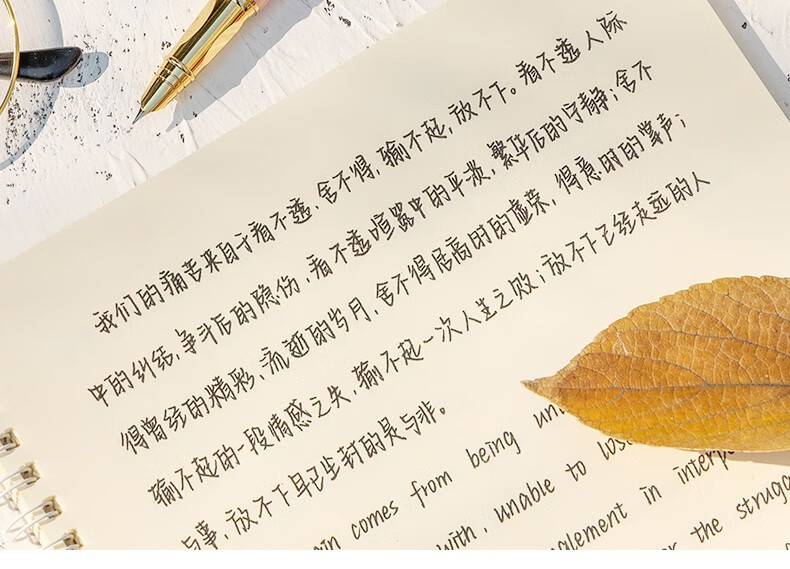 我们的痛苦来自于看不透，舍不得，输不起，放不下。看不透人际
中的纠结，争斗后的隐伤，看不透喧嚣中的平淡，繁华后的宁静；舍不
得曾经的精彩，流逝的岁月，舍不得居高时的虚荣，得意时的掌声；
输不起的一段情感之失，输不起一次人生之败；放不下已经走远的人
与事，放不下早已尘封的是与非。
comes from being
with, unable to
in
the